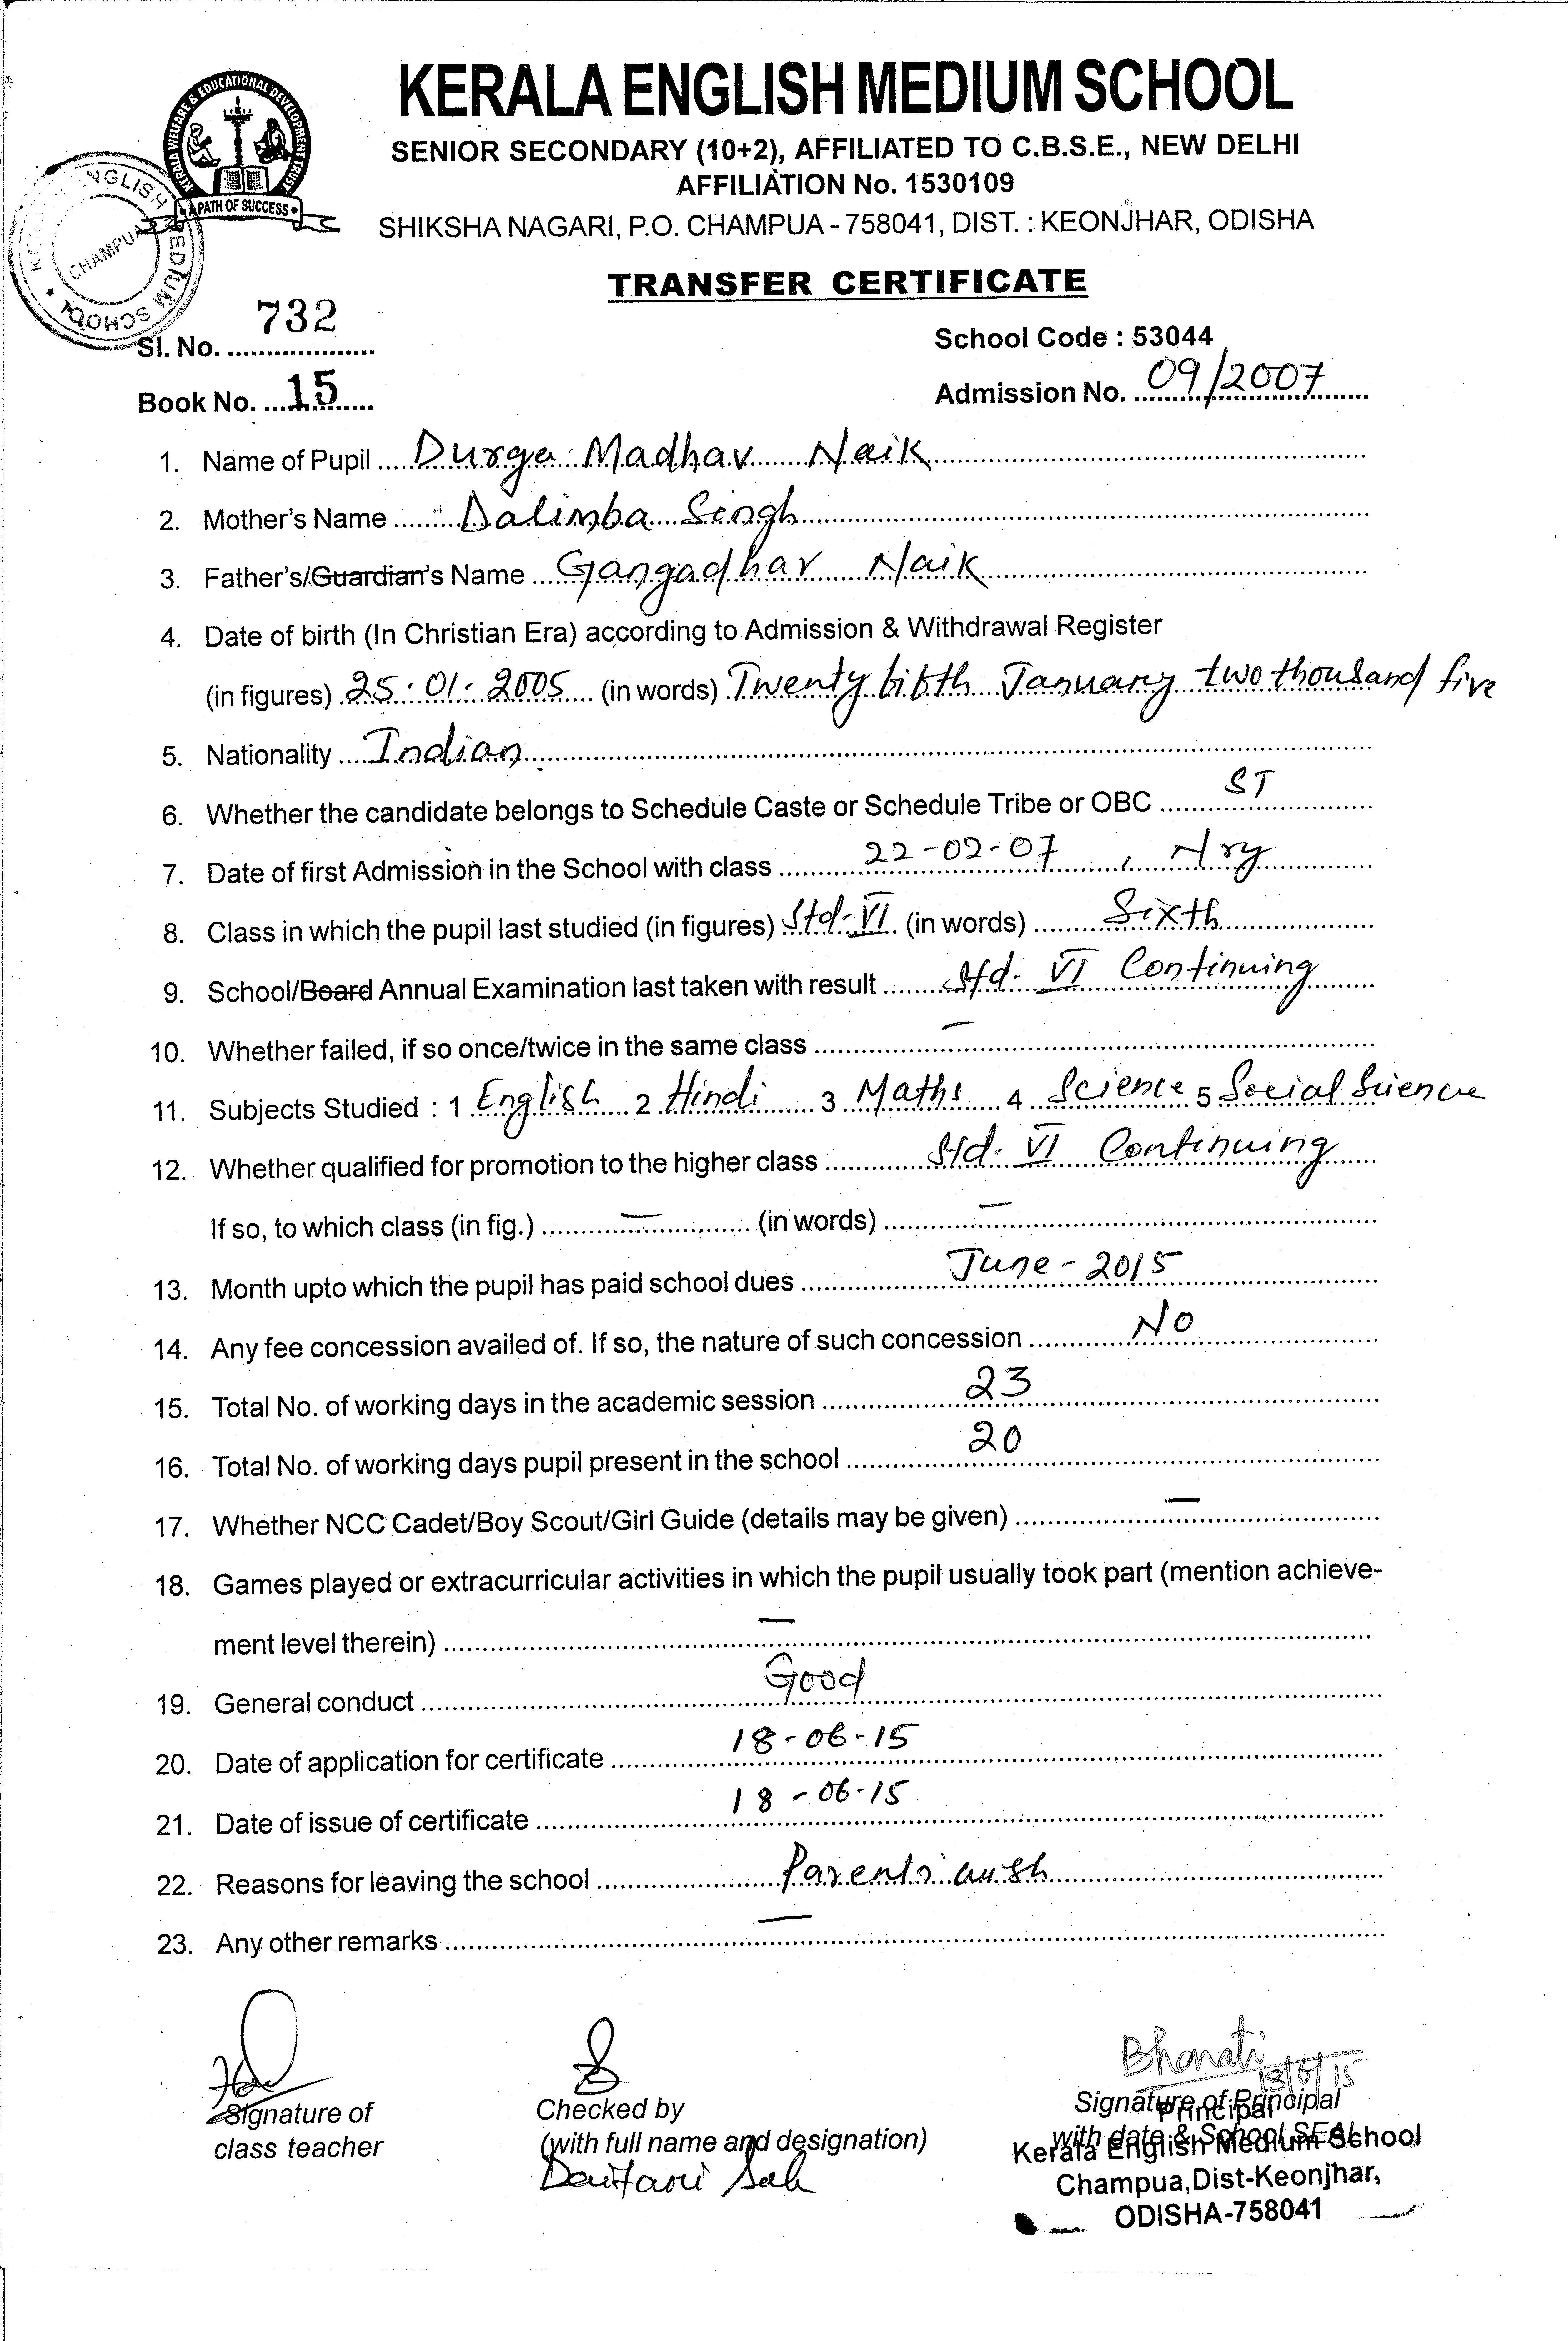 KERALA WELFARE & EDUCATIONAL DEVELOPMENT TRUST
PATH OF SUCCESS
ENGLISH MEDIUM SCHOOL
CHAMPUA
KERALA ENGLISH MEDIUM SCHOOL
SENIOR SECONDARY (10+2), AFFILIATED TO C.B.S.E., NEW DELHI
AFFILIATION No. 1530109
SHIKSHA NAGARI, P.O. CHAMPUA - 758041, DIST. : KEONJHAR, ODISHA
TRANSFER CERTIFICATE
Sl. No. 732
School Code : 53044
Book No. 15
Admission No. 09/2007
1. Name of Pupil Durga Madhav Naik
2. Mother's Name Dalimba Singh
3. Father's/Guardian's Name Gangadhar Naik
4. Date of birth (In Christian Era) according to Admission & Withdrawal Register
(in figures) 25.01.2005 (in words) Twenty fifth January two thousand five
5. Nationality Indian
6. Whether the candidate belongs to Schedule Caste or Schedule Tribe or OBC ST
7. Date of first Admission in the School with class 22-02-07, Nry
8. Class in which the pupil last studied (in figures) Std-VI (in words) Sixth
9. School/Board Annual Examination last taken with result Std- VI Continuing
10. Whether failed, if so once/twice in the same class —
11. Subjects Studied : 1 English 2 Hindi 3 Maths 4 Science 5 Social Science
12. Whether qualified for promotion to the higher class Std- VI Continuing
If so, to which class (in fig.) — (in words) —
13. Month upto which the pupil has paid school dues June-2015
14. Any fee concession availed of. If so, the nature of such concession No
15. Total No. of working days in the academic session 23
16. Total No. of working days pupil present in the school 20
17. Whether NCC Cadet/Boy Scout/Girl Guide (details may be given) —
18. Games played or extracurricular activities in which the pupil usually took part (mention achieve-
ment level therein) —
19. General conduct Good
20. Date of application for certificate 18-06-15
21. Date of issue of certificate 18-06-15
22. Reasons for leaving the school Parents' wish
23. Any other remarks —
Bhanati
18/6/15
Signature of
class teacher
Checked by
(with full name and designation)
Daitari Sah
Signature of Principal
with date & School SEAL
Principal
Kerala English Medium School
Champua,Dist-Keonjhar,
ODISHA-758041